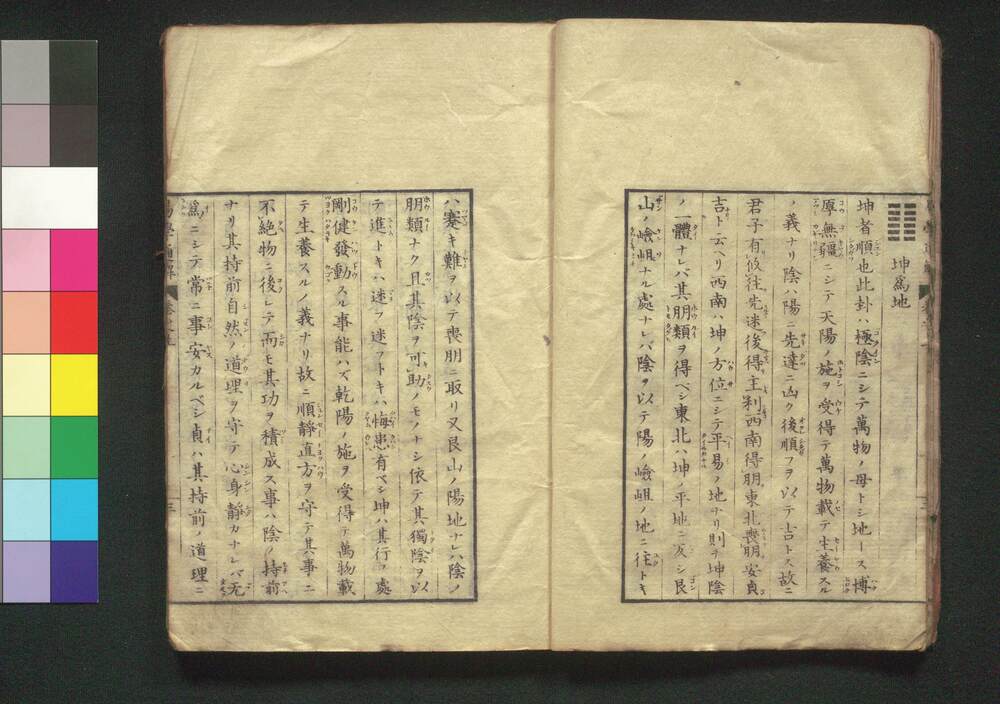 坤爲地
坤者順也此卦ハ極陰ニシテ萬物ノ母トシ地トス博
厚無疆ニシテ天陽ノ施ヲ受得テ萬物載テ生養スル
ノ義ナリ陰ハ陽ニ先達ニ凶ク後順フヲ以テ吉トス故ニ
君子有攸往先迷後得主利西南得朋東北喪朋安貞
吉ト云ヘリ西南ハ坤ノ方位ニシテ平易ノ地ナリ則チ坤陰
ノ一體ナレバ其朋類ヲ得ベシ東北ハ坤ノ平地ニ反シ艮
山ノ嶮岨ナル處ナレバ陰ヲ以テ陽ノ嶮岨ノ地ニ往トキ
ハ蹇キ難ヲ以テ喪朋ニ取リ又艮山ノ陽地ナレハ陰ノ
朋類ナク且其陰ヲ可助ノモノナシ依テ其獨陰ヲ以
テ進トキハ迷フ迷フトキハ悔患有ベシ坤ハ其行フ處
剛健發動スル事能ハズ乾陽ノ施ヲ受得テ萬物載
テ生養スルノ義ナリ故ニ順靜直方ヲ守テ其事ニ
不絶物ニ後レテ而モ其功ヲ積成ス事ハ陰ノ持前
ナリ其持前自然ノ道理ヲ守テ心身靜カナレバ无
爲ニシテ常ニ事安カルベシ貞ハ其持前ノ道理ニ
三